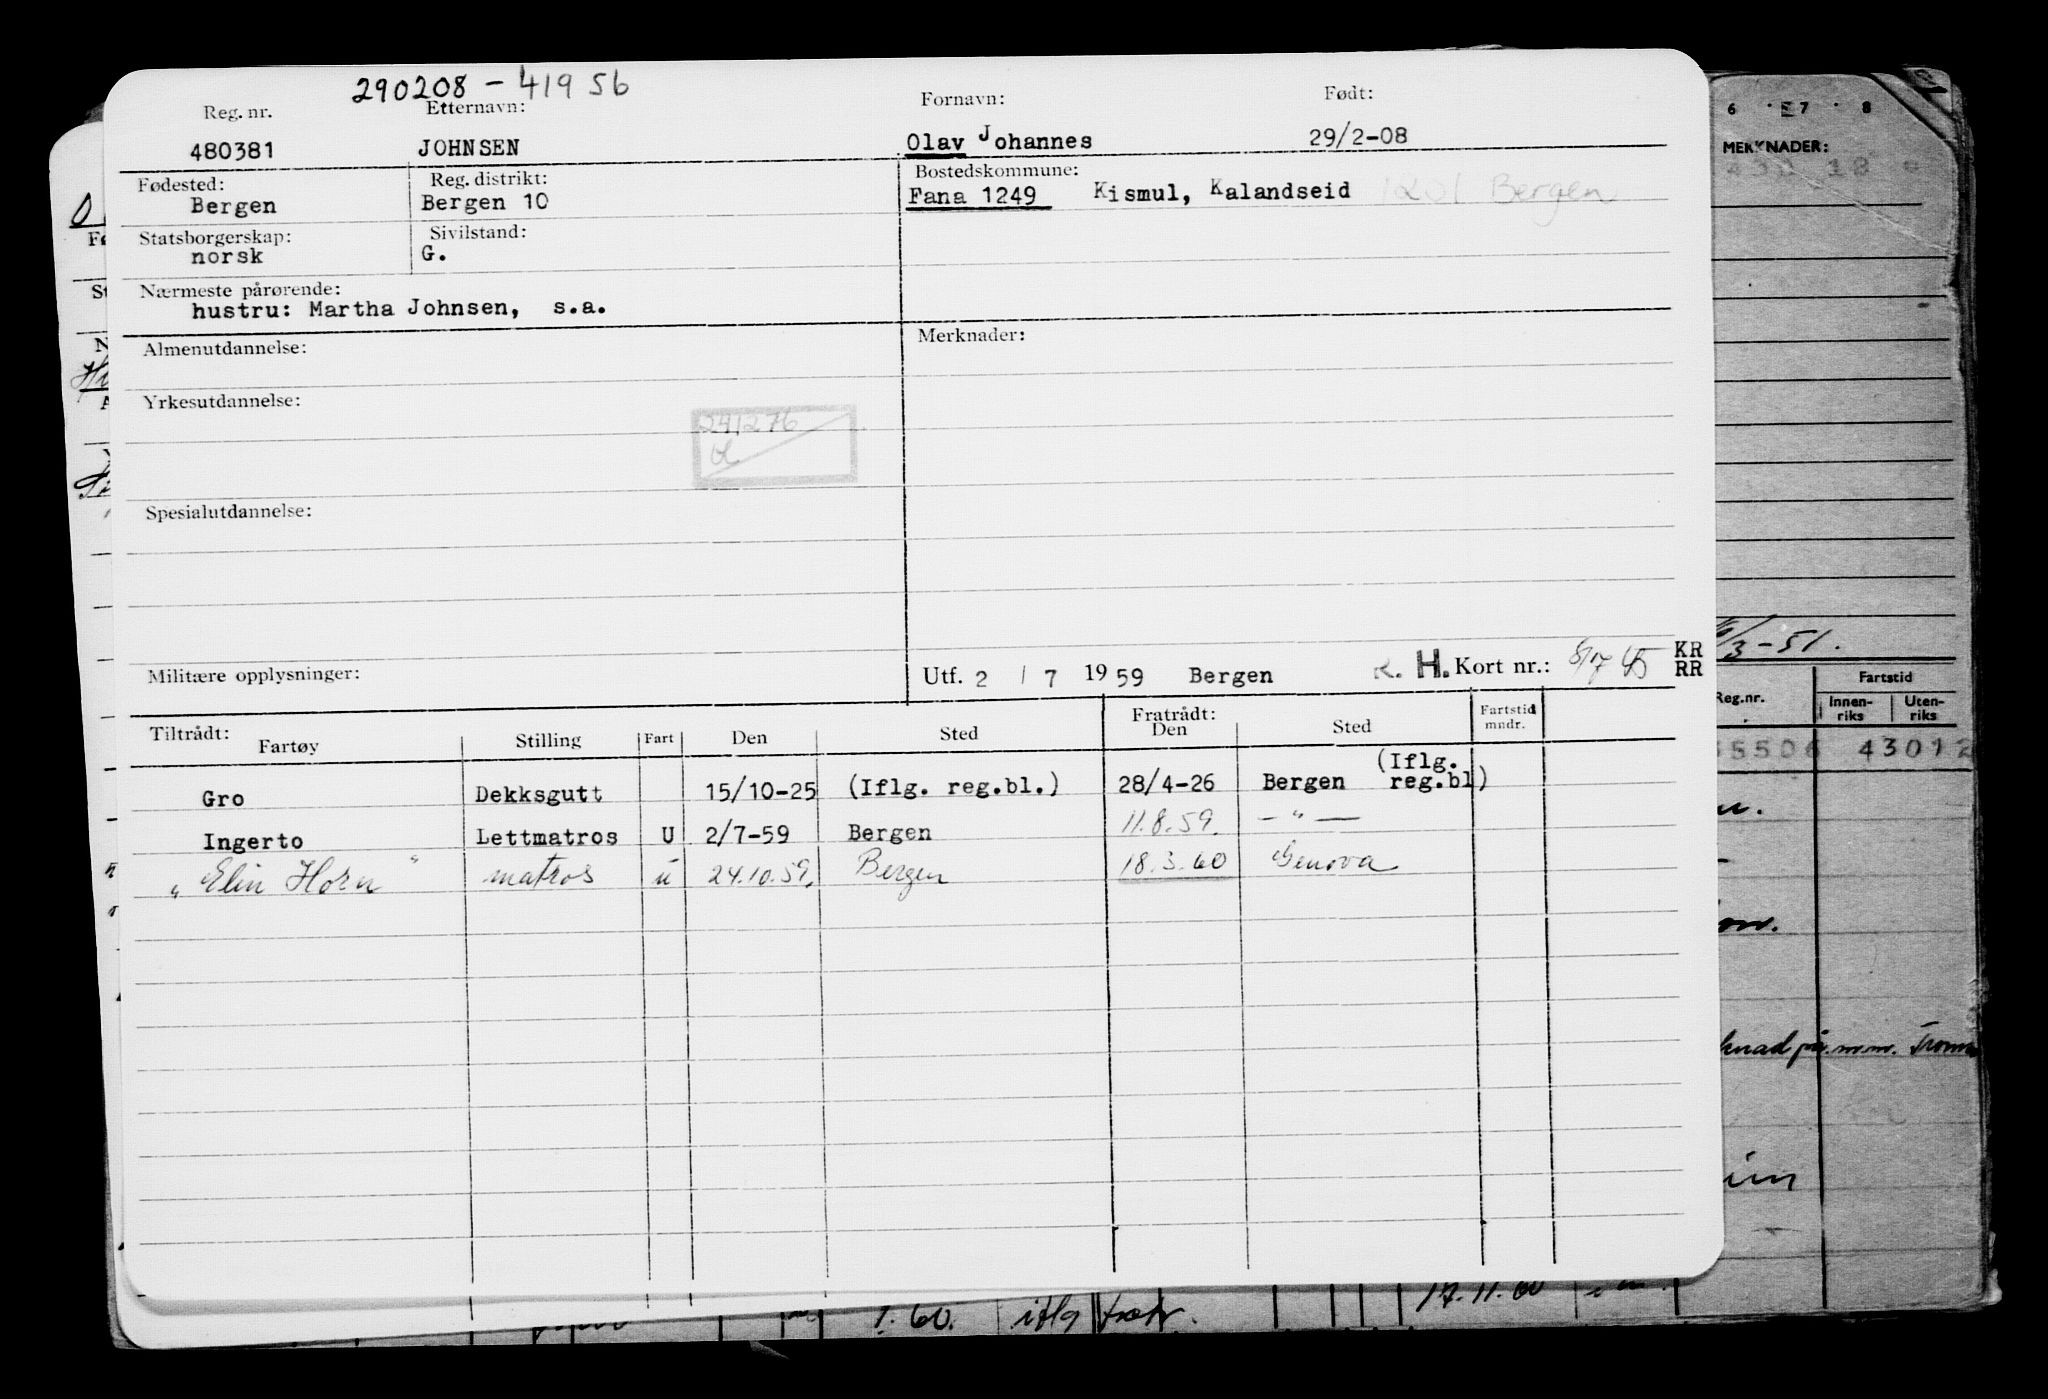 290208 - 41956
Reg. nr. Etternavn: Fornavn: Født:
480381 JOHNSEN Olav Johannes 29/2-08
Fødested: Reg. distrikt: Bostedskommune:
Bergen Bergen 10 Fana 1249 Kismul, Kalandseid 1201 Bergen
Statsborgerskap: Sivilstand:
norsk G.
Nærmeste pårørende:
hustru: Martha Johnsen, s.a.
Almenutdannelse: Merknader:
Yrkesutdannelse:
241276
Spesialutdannelse:
Militære opplysninger: Utf. 2 / 7 1959 Bergen H. Kort nr.: KR
RR
Tiltrådt: Fratrådt: Fartstid
Fartøy Stilling Fart Den Sted Den Sted mndr.
Gro Dekksgutt 15/10-25 (Iflg. reg.bl.) 28/4-26 Bergen (Iflg. reg.bl)
Ingerto Lettmatros U 2/7-59 Bergen 11.8.59. — " —
„ Elin Horn " matros u 24.10.59. Bergen 18.3.60 Genova
6 7 8
MERKNADER:
/3-51.
Reg.nr. Fartstid
Innen-riks Uten-riks
5506 43012
1.60. iflg 17.11.60